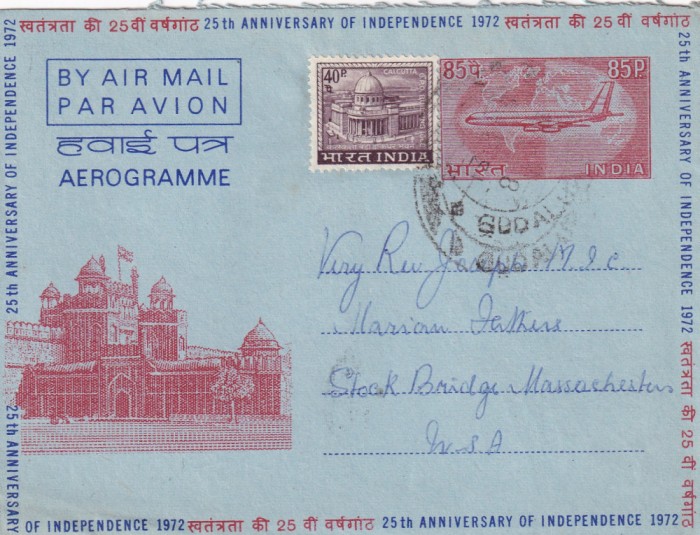 स्वतंत्रता की 25 वीं वर्षगांठ 25th ANNIVERSARY OF INDEPENDENCE 1972 स्वतंत्रता की 25 वीं वर्षगांठ
25th ANNIVERSARY OF INDEPENDENCE 1972
BY AIR MAIL
PAR AVION
हवाई पत्र
AEROGRAMME
40P
पै
CALCUTTA
भारत INDIA
85पै.
85P
भारत
INDIA
GUDALUR
GUDALUR
Very Rev Joseph M.I.C.
Marian Fathers
Stock Bridge Massachesters
U.S.A
25th ANNIVERSARY OF INDEPENDENCE 1972
स्वतंत्रता की 25 वीं वर्षगांठ
25th ANNIVERSARY
OF INDEPENDENCE 1972 स्वतंत्रता की 25 वीं वर्षगांठ 25th ANNIVERSARY OF INDEPENDENCE 1972